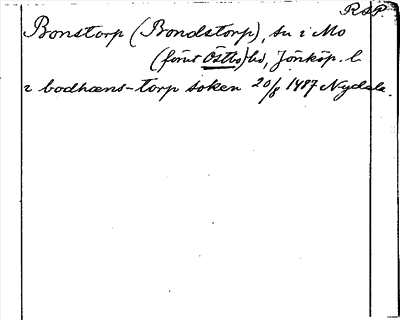 RAP.
Bonstorp (Bondstorp), sn i Mo
(förut Östbo) hd, Jönköp. l.
i bodhæns-torp soken 20/8 1487 Nydala.